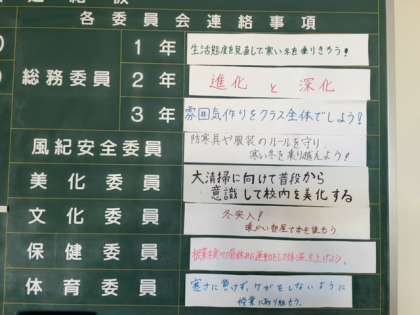 各委員会連絡事項
総務委員
1年
生活態度を見直して寒い冬を乗りきろう！
2年
進化と深化
3年
雰囲気作りをクラス全体でしよう！
風紀安全委員
防寒具や服装のルールを守り
寒い冬を乗り越えよう！
美化委員
大清掃に向けて普段から
意識して校内を美化する
文化委員
冬突入！
暖かい部屋で本を読もう
保健委員
体育委員
寒さに負けず、ケガをしないように
授業に取り組もう。